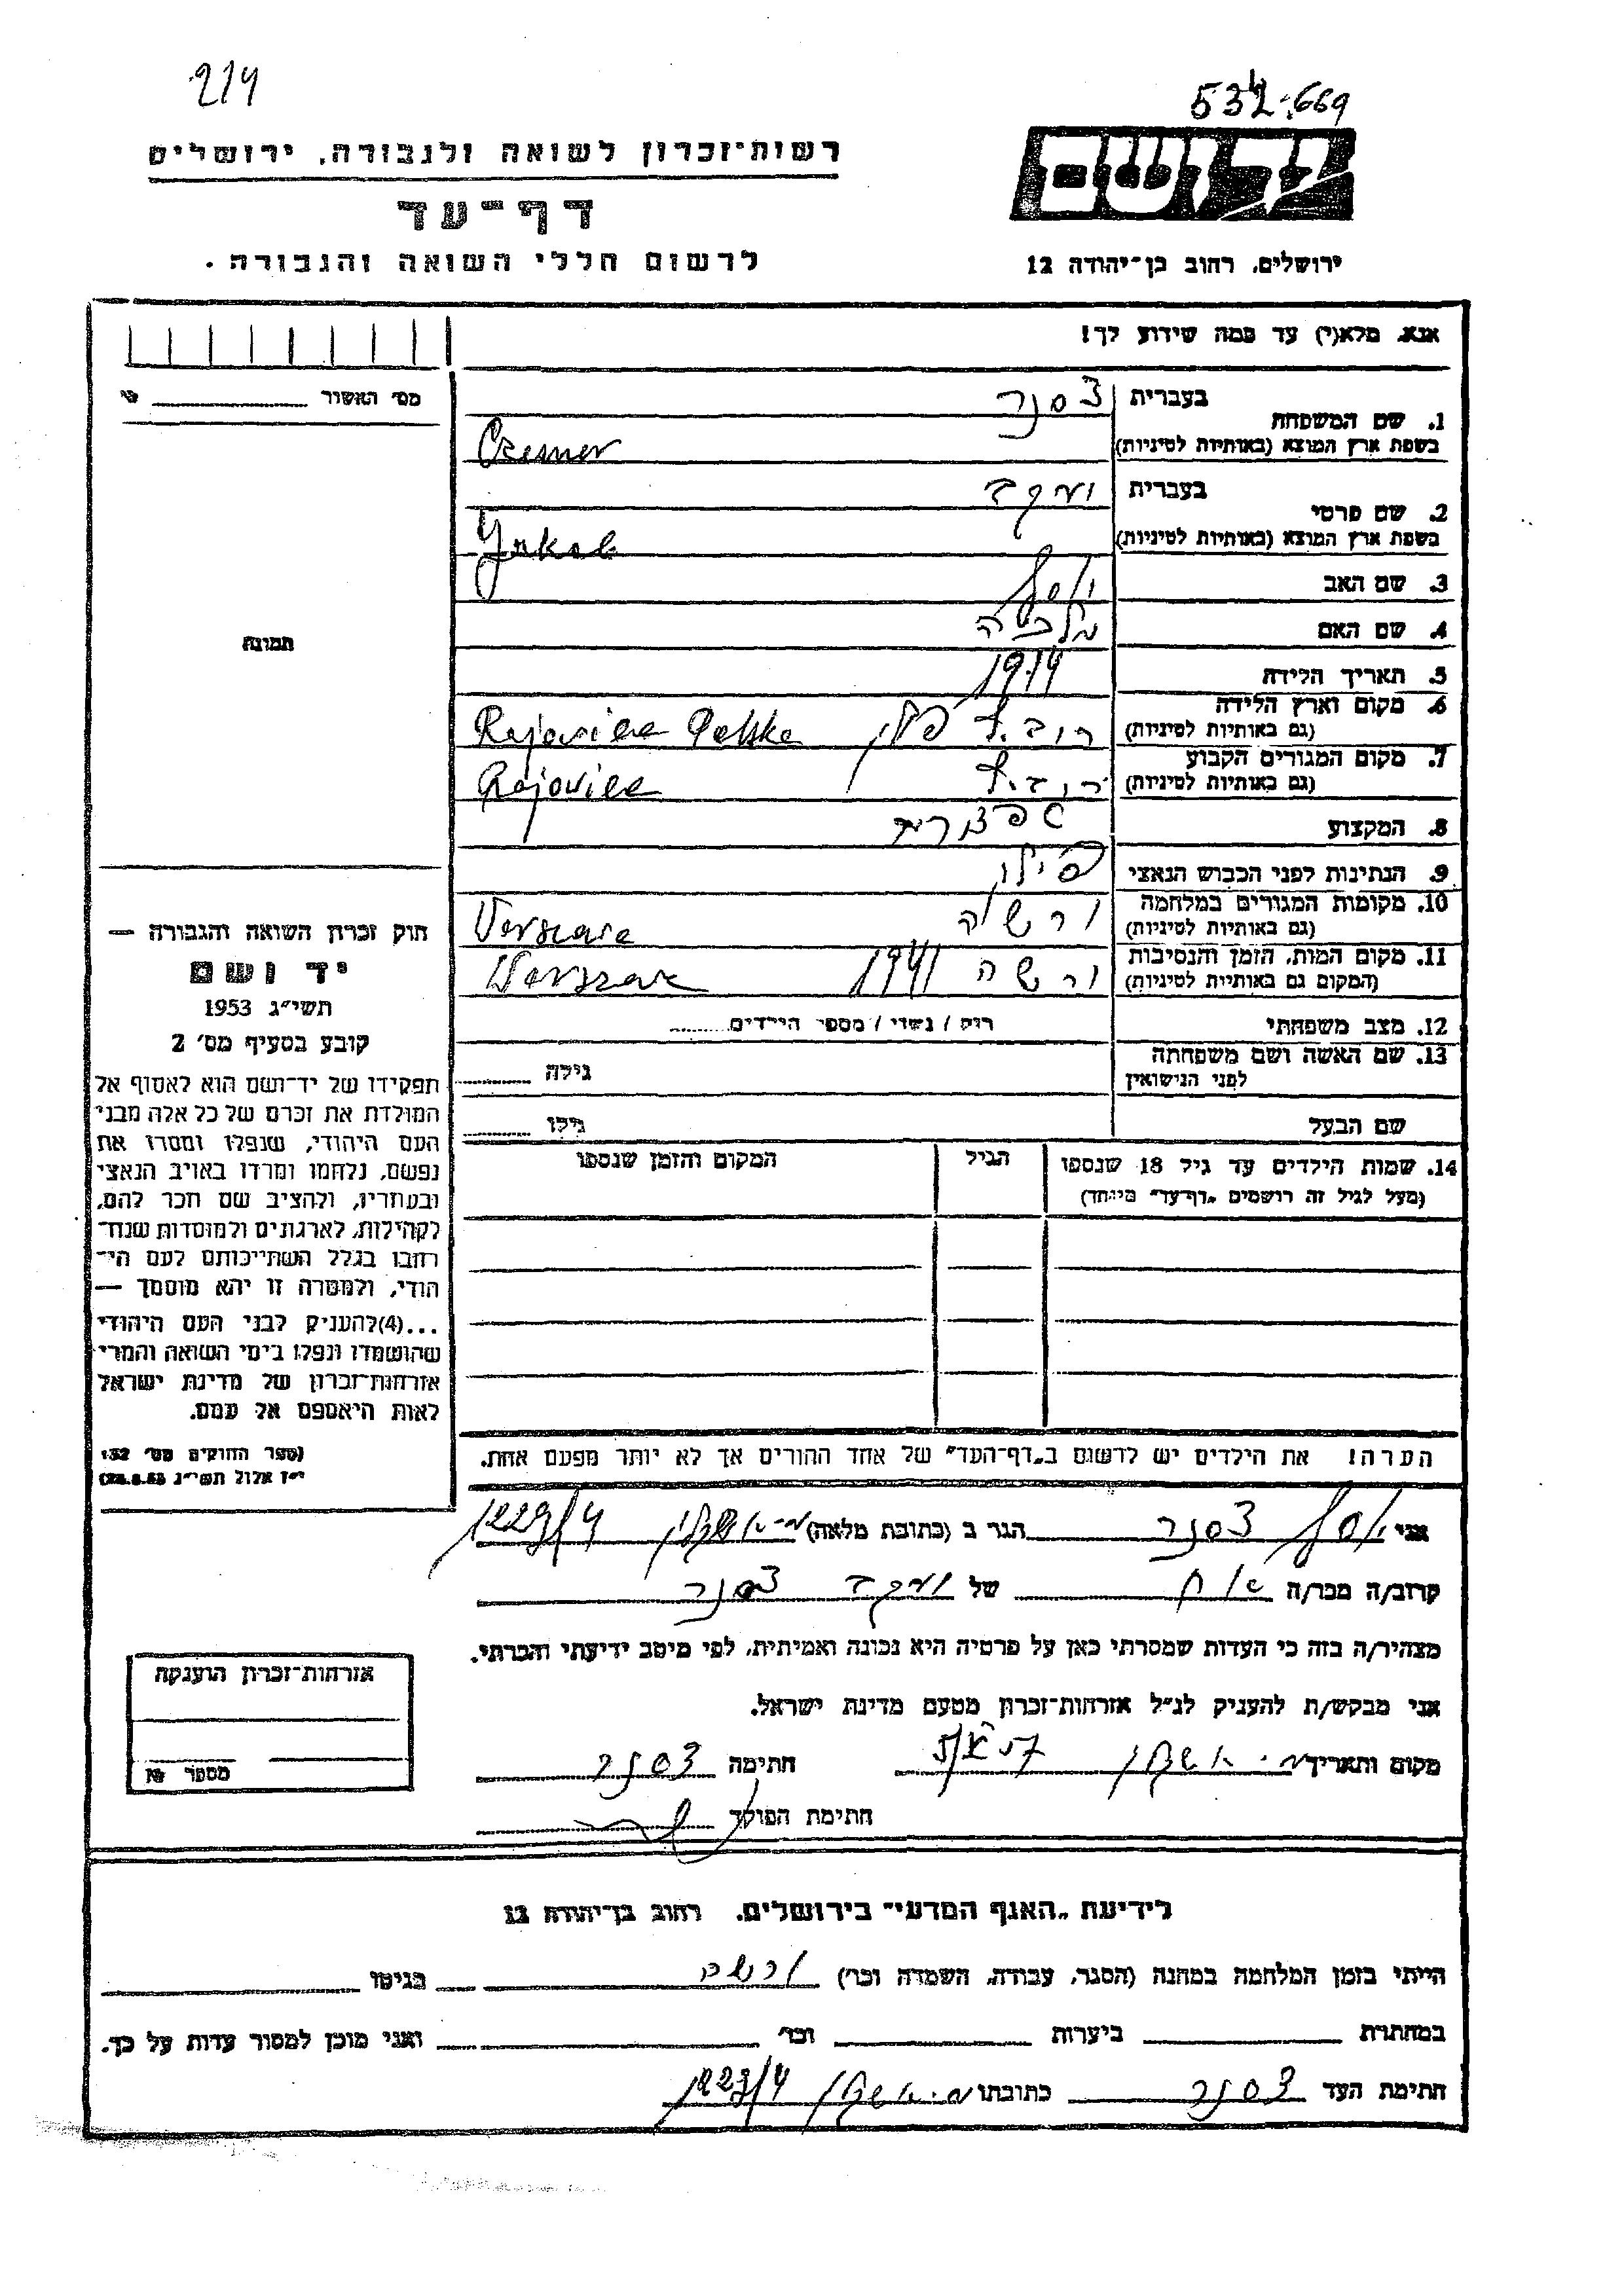 214
532.669
רשות־זכרון לשואה ולגבורה, ירושלים
דף־עד
לרשום חללי השואה והגבורה.
יד ושם
ירושלים, רחוב בן־יהודה 12
אנא, מלא(י) עד כמה שידוע לך!
מס׳ האשור
1. שם המשפחה
בעברית צסנר
בשפת ארץ המוצא (באותיות לטיניות) Czesner
2. שם פרטי
בעברית יעקב
בשפת ארץ המוצא (באותיות לטיניות) Jakob
3. שם האב יוסף
4. שם האם מלכה
5. תאריך הלידה 1914
6. מקום וארץ הלידה
(גם באותיות לטיניות) פולין Polska
7. מקום המגורים הקבוע
(גם באותיות לטיניות)
8. המקצוע
9. הנתינות לפני הכבוש הנאצי
10. מקומות המגורים במלחמה
(גם באותיות לטיניות) ורשה
11. מקום המות, הזמן והנסיבות
(המקום גם באותיות לטיניות) ורשה 1941
12. מצב משפחתי רווק / נשוי / מספר הילדים
13. שם האשה ושם משפחתה
לפני הנישואין גילה
שם הבעל גילו
14. שמות הילדים עד גיל 18 שנספו הגיל המקום והזמן שנספו
(מעל לגיל זה רושמים „דף־עד״ מיוחד)
הערה! את הילדים יש לרשום ב„דף־העד״ של אחד ההורים אך לא יותר מפעם אחת.
תמונה
חוק זכרון השואה והגבורה —
יד ושם
תשי״ג 1953
קובע בסעיף מס׳ 2
תפקידו של יד־ושם הוא לאסוף אל
המולדת את זכרם של כל אלה מבני
העם היהודי, שנפלו ומסרו את
נפשם, נלחמו ומרדו באויב הנאצי
ובעוזריו, ולהציב שם וזכר להם,
לקהילות, לארגונים ולמוסדות שנח־
רבו בגלל השתייכותם לעם הי־
הודי, ולמטרה זו יהא מוסמך —
...(4)להעניק לבני העם היהודי
שהושמדו ונפלו בימי השואה והמרי
אזרחות־זכרון של מדינת ישראל
לאות היאספם אל עמם.
(ספר החוקים מס׳ 132
י״ז אלול תשי״ג 28.8.53)
אני יוסף צסנר הגר ב (כתובת מלאה)
קרוב/ה מכר/ה אח של יעקב צסנר
מצהיר/ה בזה כי העדות שמסרתי כאן על פרטיה היא נכונה ואמיתית, לפי מיטב ידיעתי והכרתי.
אני מבקש/ת להעניק לנ״ל אזרחות־זכרון מטעם מדינת ישראל.
מקום ותאריך חתימה צסנר
חתימת הפוקד
אזרחות־זכרון הוענקה
מספר №
לידיעת „האגף המדעי״ בירושלים, רחוב בן־יהודה 12
הייתי בזמן המלחמה במחנה (הסגר, עבודה, השמדה וכו׳) ורשה בגיטו
במחתרת ביערות וכו׳ ואני מוכן למסור עדות על כך.
חתימת העד צסנר כתובתו